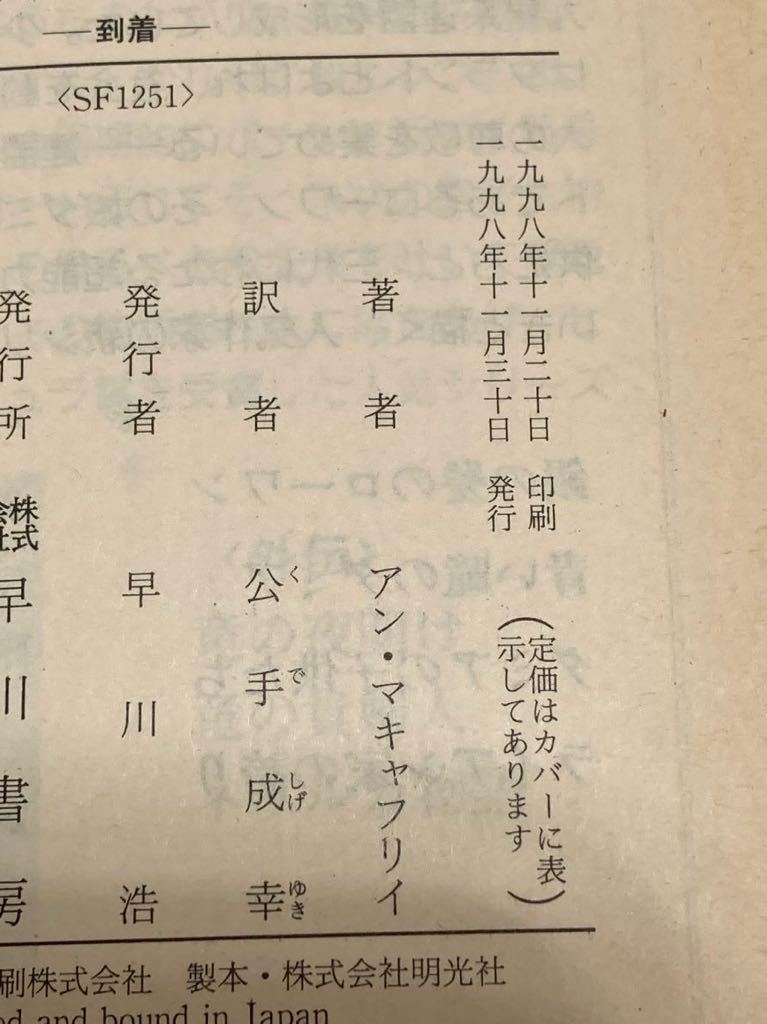 ―到着―
〈SF1251〉
一九九八年十一月二十日 印刷
一九九八年十一月三十日 発行
（定価はカバーに表
示してあります）
著者 アン・マキャフリイ
訳者 公手成幸
くでしげゆき
発行者 早川浩
発行所 株式会社 早川書房
刷株式会社 製本・株式会社明光社
ed and bound in Japan